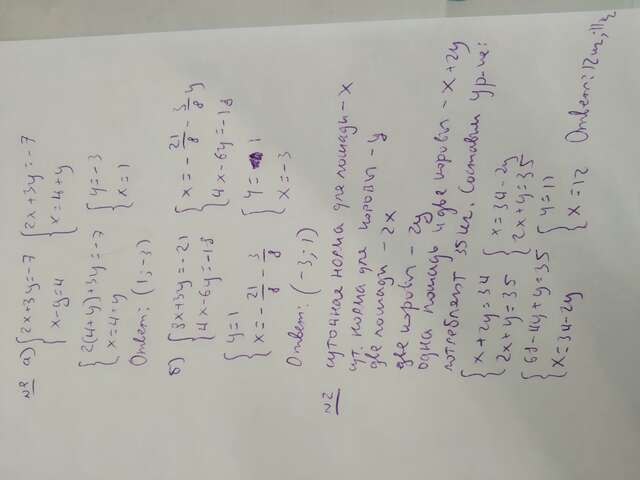 №1 а) { 2x+3y=-7 { 2x+3y=-7
x-y=4 x=4+y
{ 2(4+y)+3y=-7 { y=-3
x=4+y x=1
Ответ: (1;-3)
б) { 8x+3y=-21 { x=-21/8-3/8y
4x-6y=-18 4x-6y=-18
{ y=1 { y=1
x=-21/8-3/8 x=-3
Ответ: (-3;1)
№2 суточная норма для лошади-x
сут. норма для коровы-y
две лошади-2x
две коровы-2y
одна лошадь и две коровы-x+2y
потребляют 35 кг. Составим ур-не:
{ x+2y=34 { x=34-2y
2x+y=35 2x+y=35
{ 68-4y+y=35 { y=11
x=34-2y x=12 Ответ: 12кг; 11кг